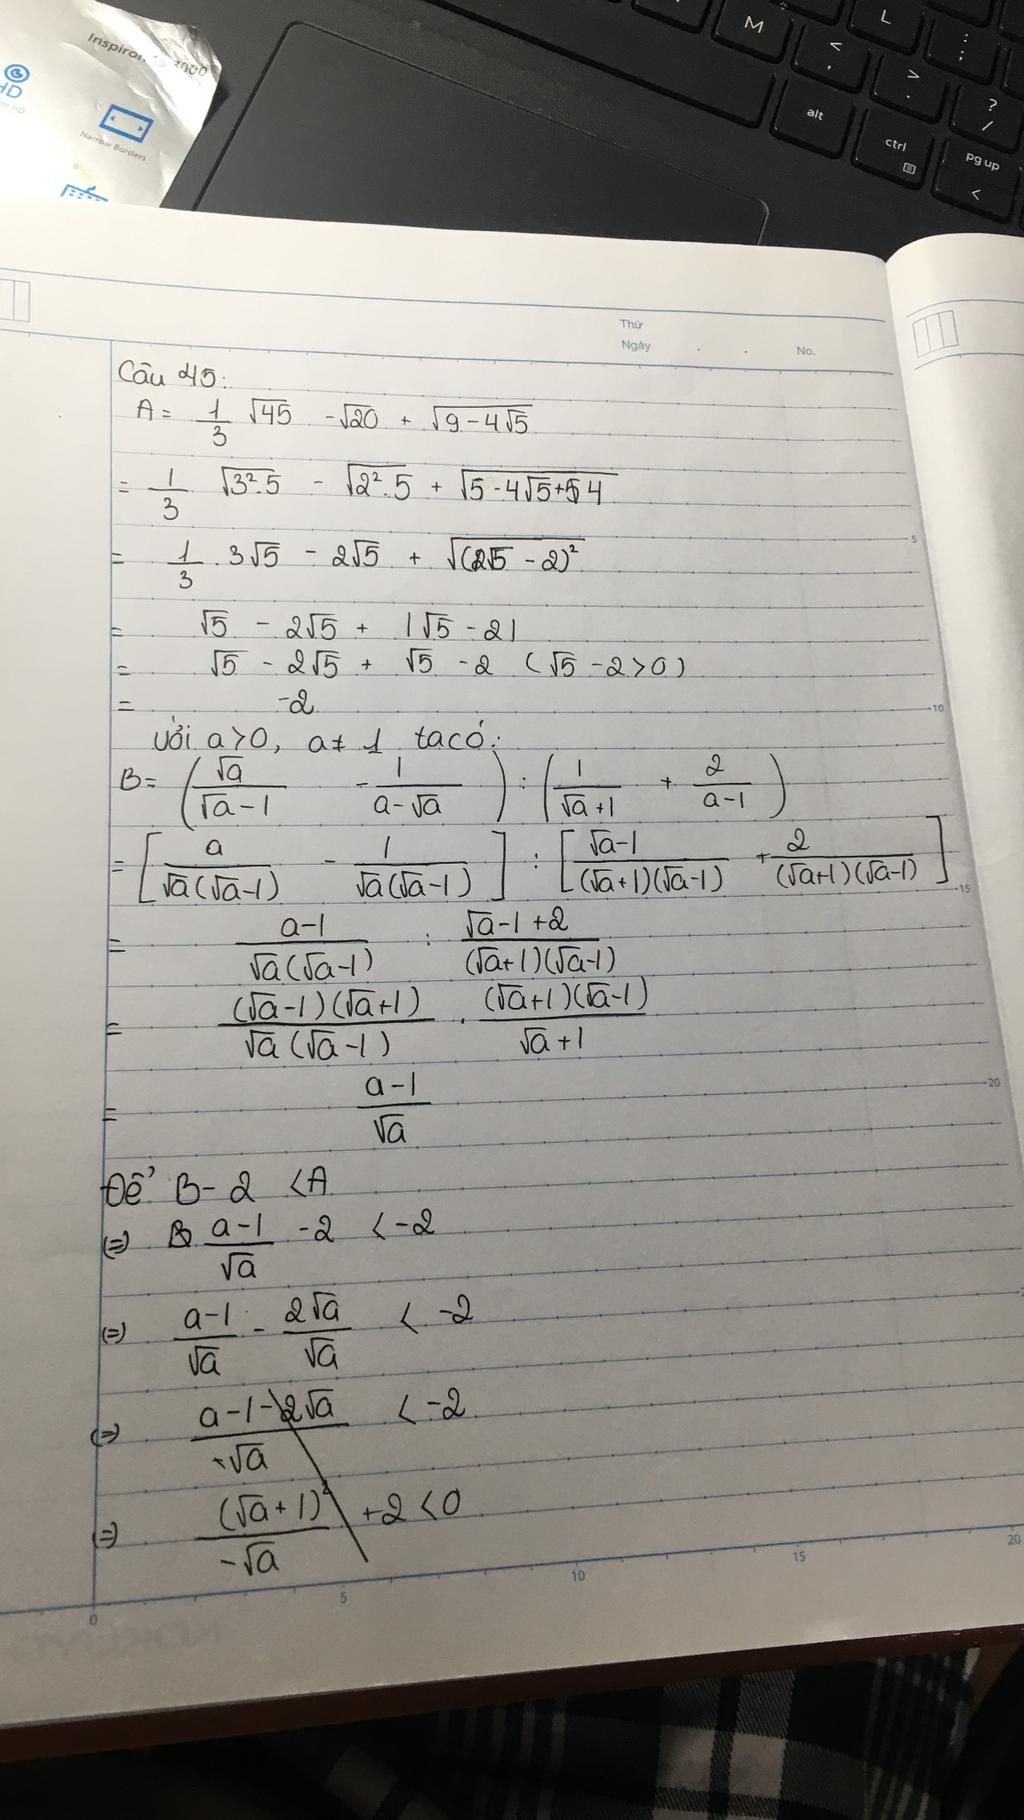 Inspiron 15 3000
HD
Narrow Borders
M
L
<
,
;
:
>
.
?
/
alt
ctrl
pg up
<
Thứ
Ngày . . No.
Câu 45:
A = 1/3 √45 - √20 + √(9 - 4√5)
= 1/3 √(3².5) - √(2².5) + √(5 - 4√5 + 4)
= 1/3 . 3√5 - 2√5 + √((√5 - 2)²)
= √5 - 2√5 + |√5 - 2|
= √5 - 2√5 + √5 - 2 (√5 - 2 > 0)
= -2
với a > 0, a ≠ 1 ta có:
B = (√a/(√a - 1) - 1/(a - √a)) : (1/(√a + 1) + 2/(a - 1))
= [a/(√a(√a - 1)) - 1/(√a(√a - 1))] : [(√a - 1)/((√a + 1)(√a - 1)) + 2/((√a + 1)(√a - 1))]
= (a - 1)/(√a(√a - 1)) : (√a - 1 + 2)/((√a + 1)(√a - 1))
= ((√a - 1)(√a + 1))/(√a(√a - 1)) . ((√a + 1)(√a - 1))/(√a + 1)
= (a - 1)/√a
Để B - 2 < A
(=) (a - 1)/√a - 2 < -2
(=) (a - 1)/√a - 2√a/√a < -2
(=) (a - 1 - 2√a)/-√a < -2
(=) (√a + 1)²/-√a + 2 < 0
5
10
15
20
0
5
10
15
20